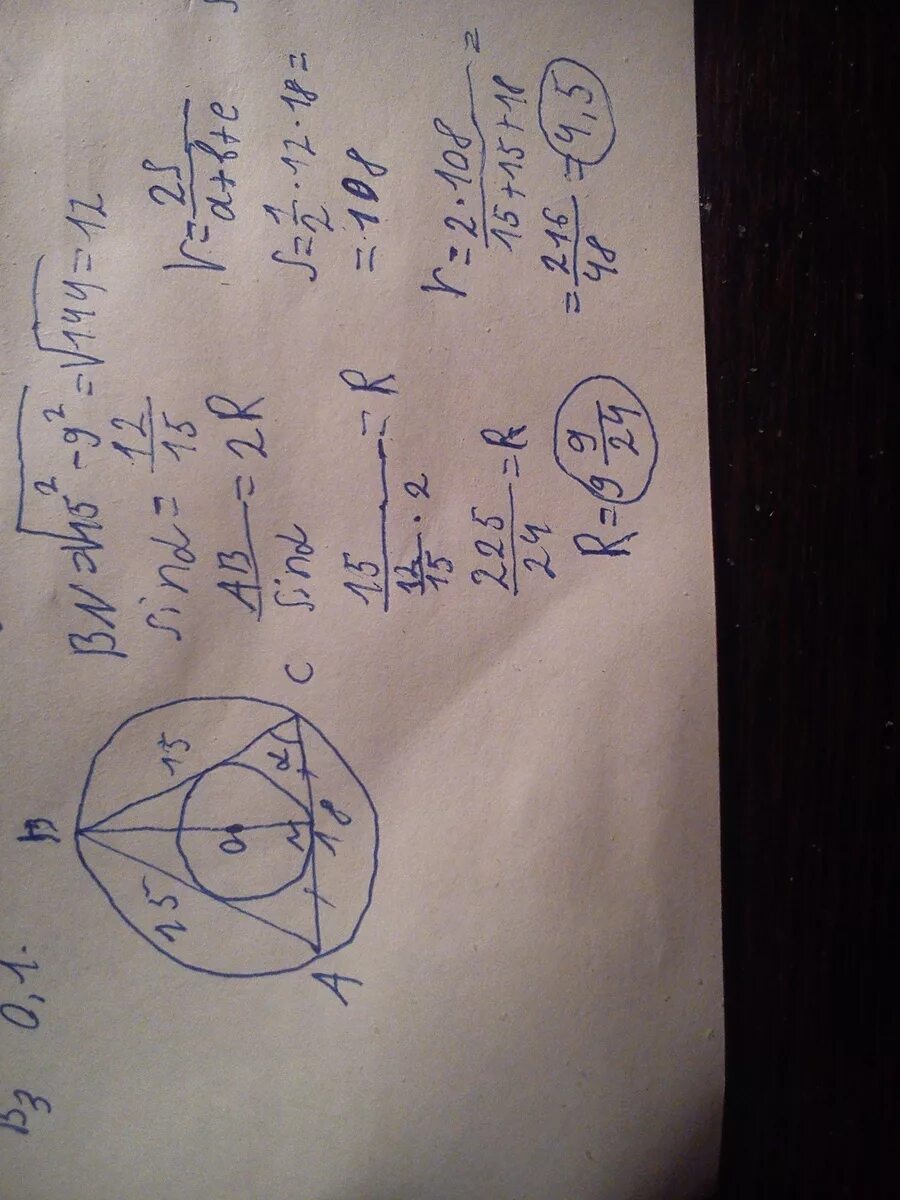 B3 0,1.
B
15
15
O
N
α
A
18
C
BN = √15² - 9² = √144 = 12
sin α = 12/15
AB/sin α = 2R
15/(12/15 · 2) = R
225/24 = R
R = 9 9/24
r = 2S/(a+b+c)
S = 1/2 · 12 · 18 =
= 108
r = 2 · 108/(15+15+18) =
= 216/48 = 4,5